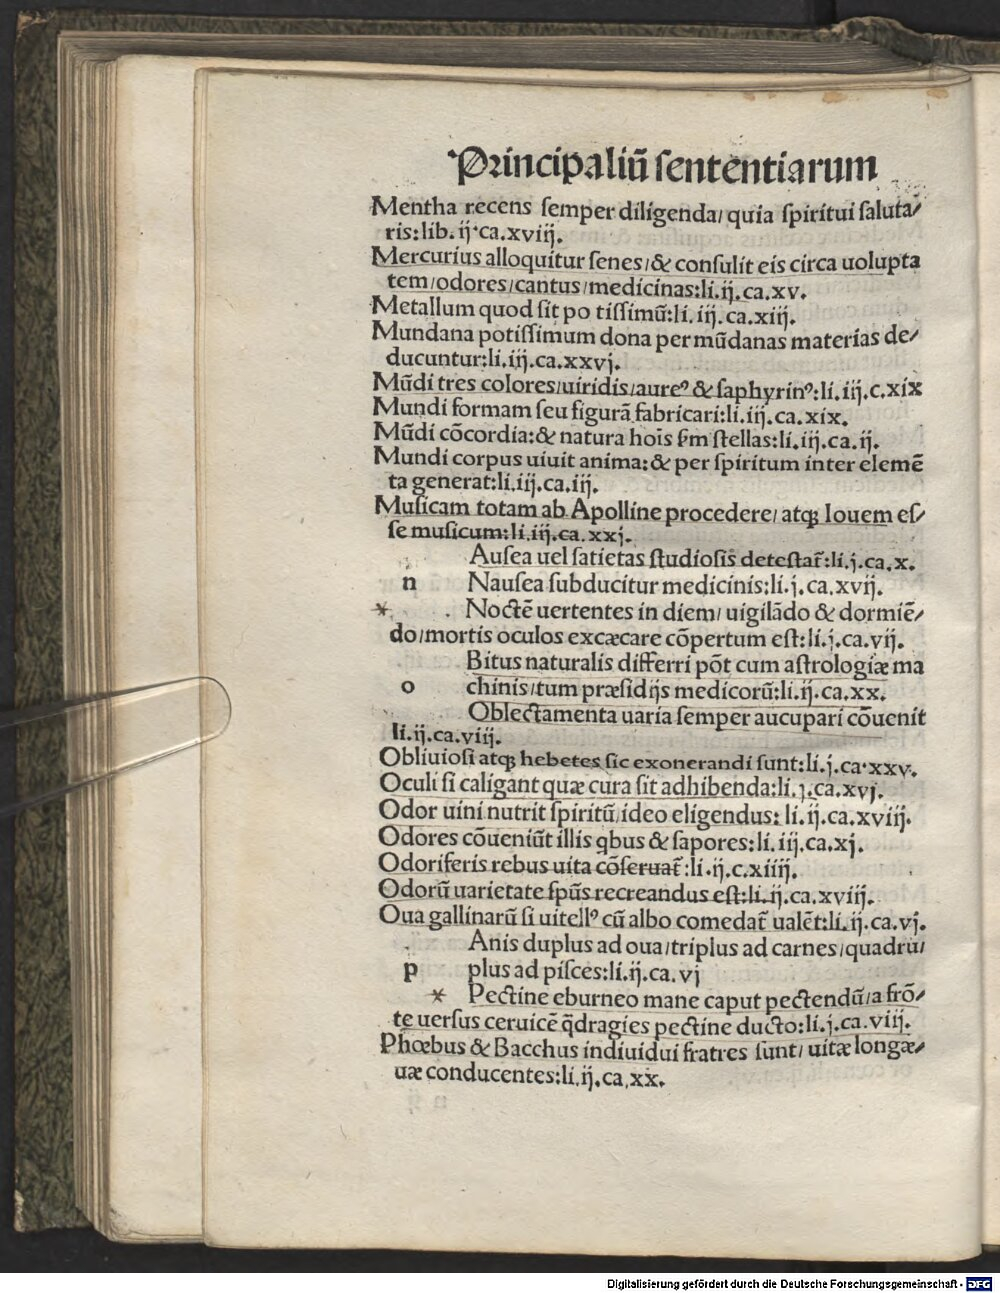 Principaliũ sententiarum
Mentha recens semper diligenda/ quia spiritui saluta/
ris:lib.ij.ca.xviij.
Mercurius alloquitur senes/& consulit eis circa uolupta
tem/odores/cantus/medicinas:li.ij.ca.xv.
Metallum quod sit po tissimũ:li.iij.ca.xiij.
Mundana potissimum dona per mũdanas materias de/
ducuntur:li.iij.ca.xxvj.
Mũdi tres colores/uiridis/aureꝰ & saphyrinꝰ:li.iij.c.xix
Mundi formam seu figurã fabricari:li.iij.ca.xix.
Mũdi cõcordia:& natura hoĩs ẜm stellas:li.iij.ca.ij.
Mundi corpus uiuit anima:& per spiritum inter elemẽ
ta generat:li.iij.ca.iij.
Musicam totam ab Apolline procedere/ atqꝫ Iouem es/
se musicum:li.iij.ca.xxj.
Ausea uel satietas studiosis detestat̃:li.j.ca.x.
n Nausea subducitur medicinis:li.j.ca.xvij.
* Noctẽ uertentes in diem/ uigilãdo & dormiẽ/
do/mortis oculos excæcare cõpertum est:li.j.ca.vij.
Bitus naturalis differri põt cum astrologiæ ma
o chinis/tum præsidijs medicorũ:li.ij.ca.xx.
Oblectamenta uaria semper aucupari cõuenit
li.ij.ca.viij.
Obliuiosi atqꝫ hebetes sic exonerandi sunt:li.j.ca.xxv.
Oculi si caligant quæ cura sit adhibenda:li.j.ca.xvj.
Odor uini nutrit spiritũ/ideo eligendus: li.ij.ca.xviij.
Odores cõueniũt illis qbus & sapores:li.iij.ca.xj.
Odoriferis rebus uita cõseruat̃:li.ij.c.xiiij.
Odorũ uarietate spũs recreandus est:li.ij.ca.xviij.
Oua gallinarũ si uitellꝰ cũ albo comedat̃ ualẽt:li.ij.ca.vj.
Anis duplus ad oua/triplus ad carnes/quadru/
p plus ad pisces:li.ij.ca.vj
* Pectine eburneo mane caput pectendũ/a frõ/
te uersus ceruicẽ q̃dragies pectine ducto:li.j.ca.viij.
Phœbus & Bacchus indiuidui fratres sunt/ uitæ longæ/
uæ conducentes:li.ij.ca.xx.
Digitalisierung gefördert durch die Deutsche Forschungsgemeinschaft - DFG